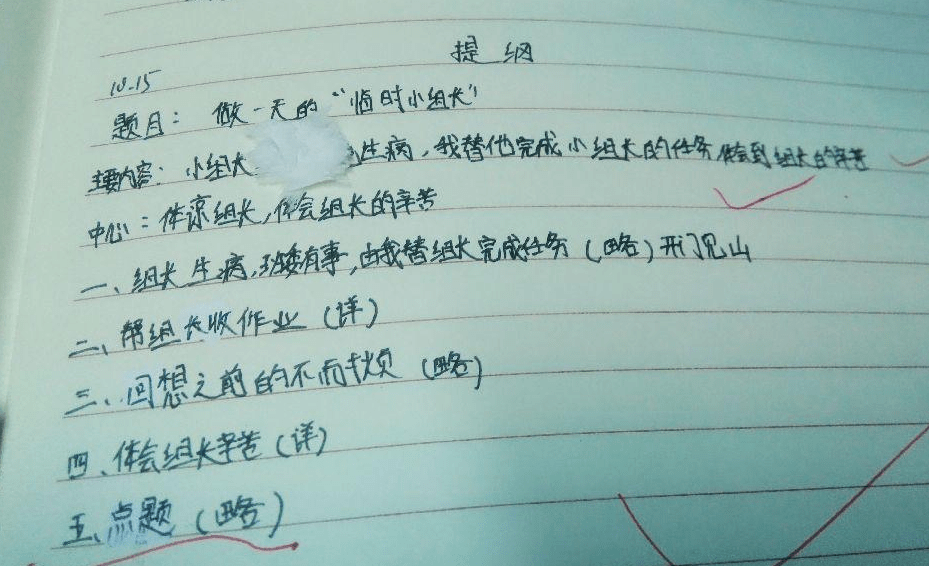 提纲
10.15
题目：做一天的“临时小组长”
主要内容：小组长生病，我替他完成小组长的任务，体会到组长的辛苦
中心：体谅组长，体会组长的辛苦
一、组长生病，班委有事，由我替组长完成任务（略）开门见山
二、帮组长收作业（详）
三、回想之前的不耐烦（略）
四、体会组长辛苦（详）
五、点题（略）